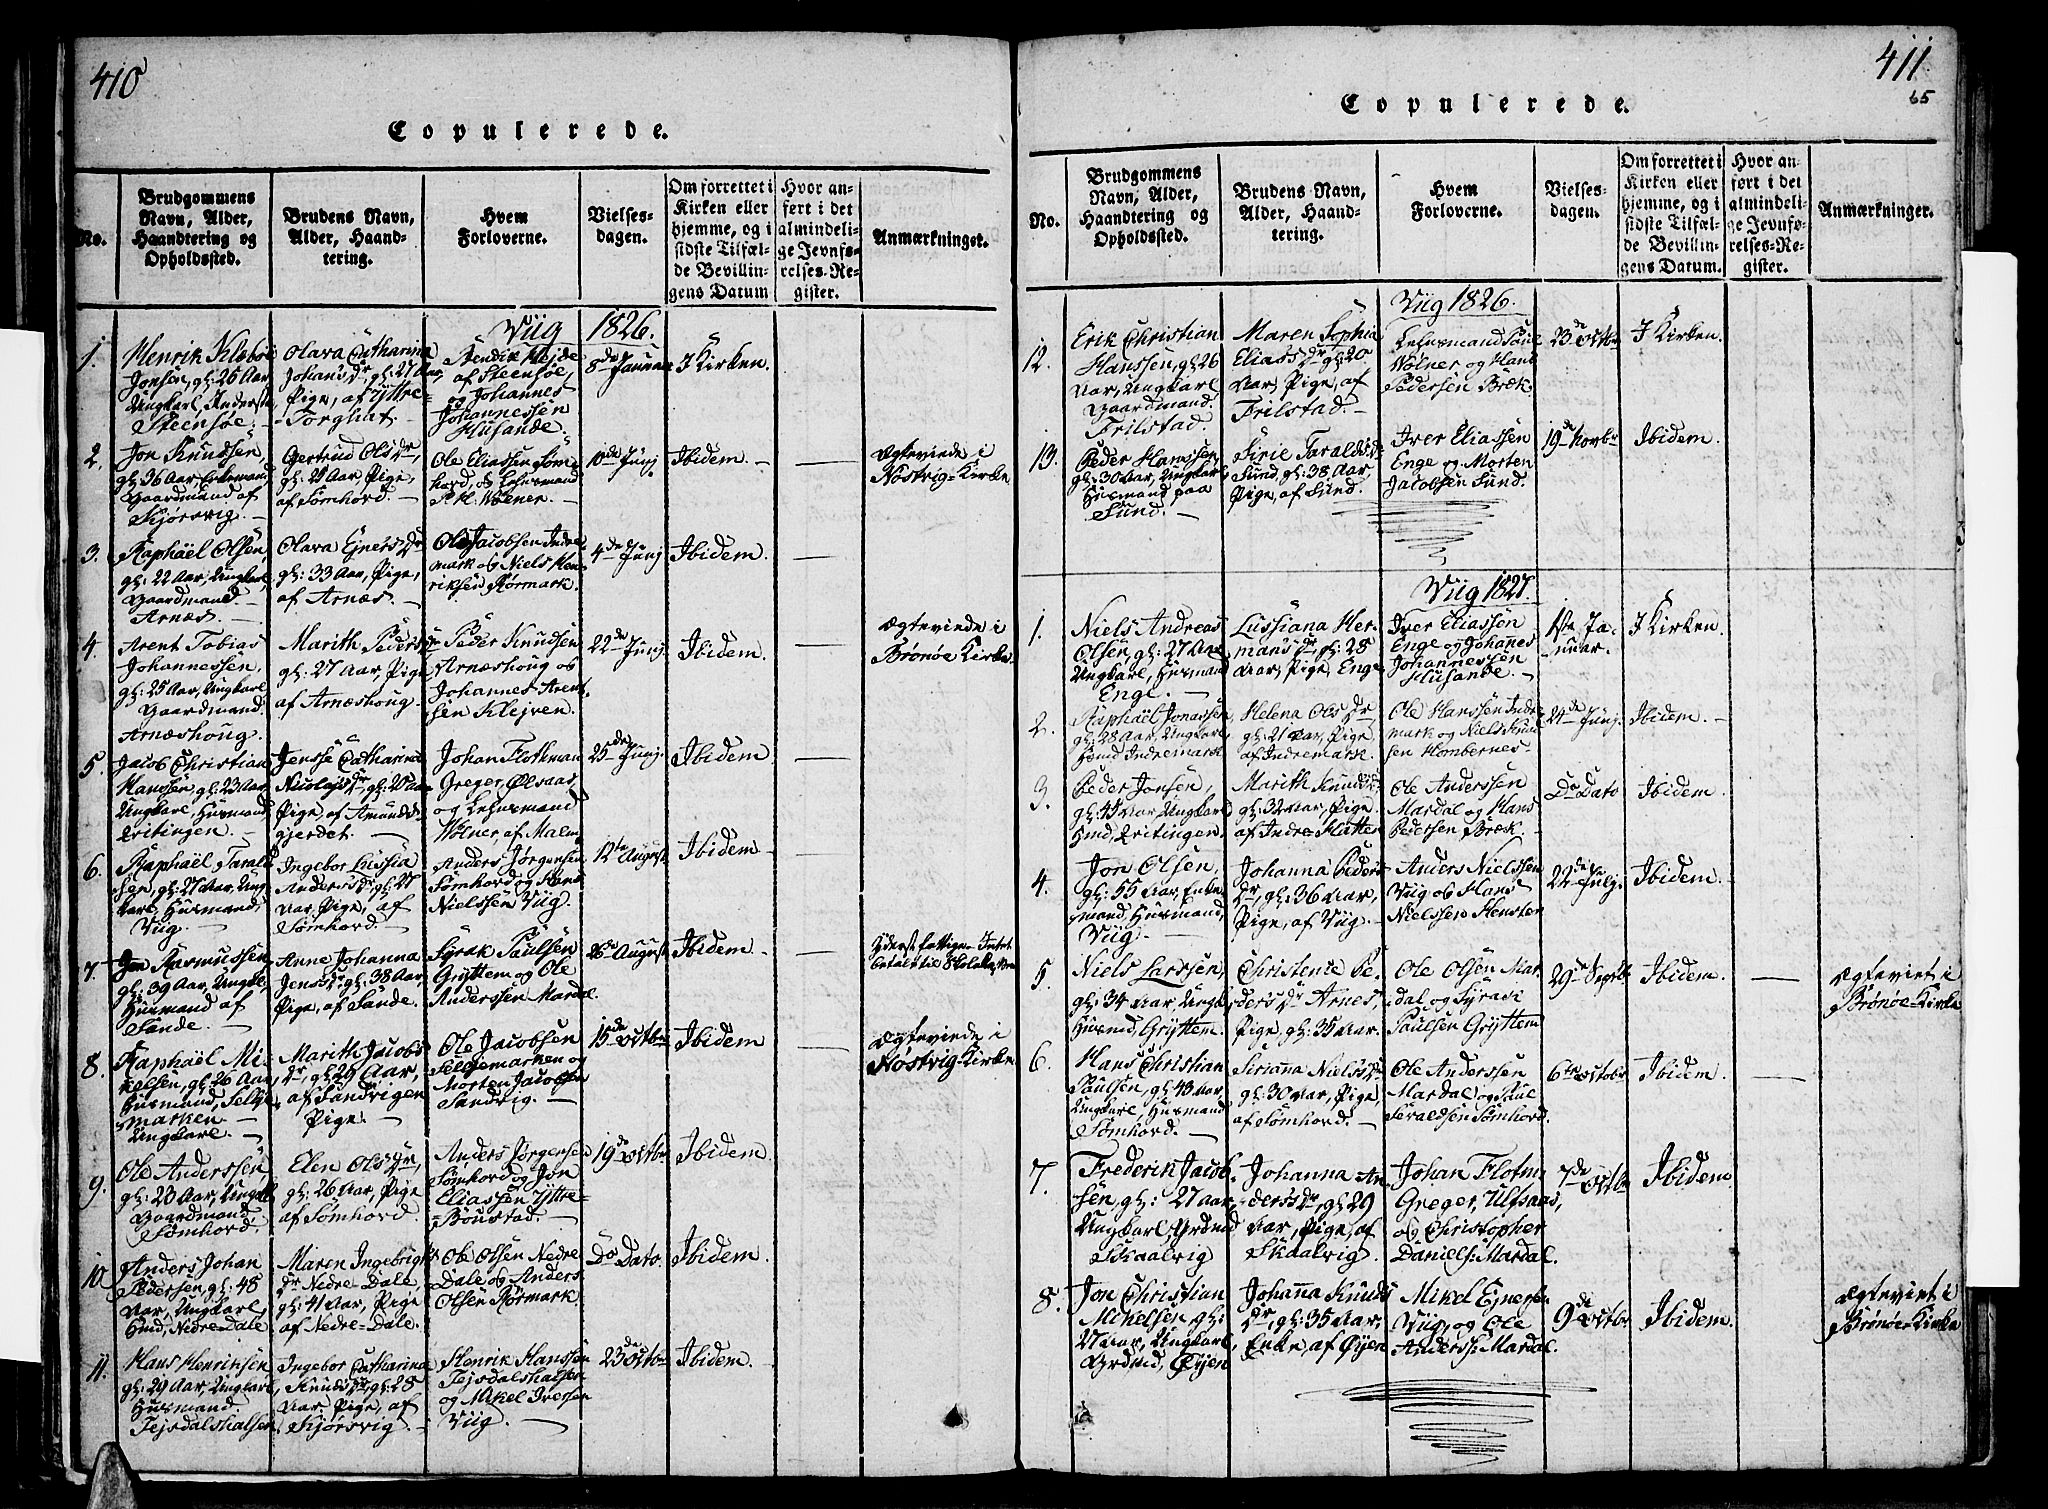 410
Copulerede.
No.
Brudgommens
Navn, Alder,
Haandtering og
Opholdssted.
Brudens Navn,
Alder, Haand-
tering.
Hvem
Forloverne.
Vielses-
dagen.
Om forrettet i
Kirken eller
hjemme, og i
sidste Tilfæl-
de Bevillin-
gens Datum
Hvor an-
ført i det
almindeli-
ge Jevnfø-
relses-Re-
gister.
Anmærkninger.
Viig 1826.
1.
Henrik Klæboe
Jonsen, gl: 25 Aar,
Ungkarl,
Steensøe.
Olava Catharina
Johans Dr, gl: 27 Aar,
Pige, af Yttre-
Torghat.
Hendrik Hejde
af Steensøe,
og Johannes
Johannessen
Husande.
8de Januar
I Kirken.
2.
Jon Knudsen,
gl: 36 Aar, Enkemand,
Gaardmand af
Kjørsvig.
Gertrud Ols Dr,
gl: 29 Aar, Pige,
af Sømhord.
Ole Eliassen Søm-
hord, og Lehnsmand
P. H. Wolner.
10de Junj.
Ibidem.
Ægteviede i
Nøstvig-Kirke
3.
Raphäel Olsen,
gl: 22 Aar, Ungkarl,
Gaardmand.
Arnæs.
Olava Ejners Dr
gl: 33 Aar, Pige,
af Arnæs.
Ole Jacobsen Indre-
mark og Niels Hen-
riksen Rørmark.
4de Junj
Ibidem.
4.
Arent Tobias
Johannessen,
gl: 25 Aar, Ungkarl
Gaardmand.
Arnæshoug.
Marith Peders Dr
gl: 27 Aar, Pige,
af Arnæshoug.
Peder Knudsen
Arnæshoug og
Johannes Arent-
sen Klejven.
22de Junj.
Ibidem.
Ægteviede i
Brønøe Kirke.
5.
Jacob Christian
Hanssen, gl: 23 Aar,
Ungkarl, Husmand
Eritingen.
Jensse Catharina
Nicolajs Dr, gl: 20 Aar
Pige, af Amunds-
gjerdet.
Johan Flottman
Greger, Ølsaas
og Lehnsmand
Wolner, af Malm
25de Junj.
Ibidem.
6.
Raphäel Farald-
sen, gl: 27 Aar, Ung-
karl, Husmand,
Viig.
Ingebor Lussia
Anders Dr, gl: 27
Aar, Pige, af
Sømhord.
Anders Jørgensen
Sømhord og Hans
Nielssen Viig.
12te August
Ibidem.
7.
Jon Rasmussen,
gl: 39 Aar, Ungkarl,
Husmand af
Sande.
Anne Johanna
Jens Dr, gl: 38 Aar,
Pige, af Sande.
Syrak Paulsen
Gryttem og Ole
Anderssen Mardal.
26de August
Ibidem.
Yderst fattige. Intet
betalt til
8.
Raphäel Mi-
kelsen, gl: 26 Aar,
Husmand, Selje
marken
Ungkarl.
Marith Jacobs
Dr, gl: 29 Aar,
af Sandvigen
Pige.
Ole Jacobsen
Seljemarken og
Morten Jacobsen
Sandvig.
15de Octbr
Ibidem
Ægteviede i
Nøstvig-Kirke.
9.
Ole Anderssen,
gl: 23 Aar, Ungkl
Gaardmand
Sømhord.
Elen Ols Dr,
gl: 26 Aar, Pige
af Sømhord.
Anders Jørgensen
Sømhord og Jon
Eliassen Yttre-
-Bøustad.
19de Octbr
Ibidem.
10
Anders Johan
Pedersen, gl: 48
Aar, Ungkarl,
Hmd, Nedre-Dale
Maren Ingebrigts
Dr Nedre-Dale
gl: 41 Aar, Pige
af Nedre-Dale.
Ole Olsen Nedre
Dale og Anders
Olsen Rørmark.
Do Dato.
Ibidem.
11.
Hans Henriksen
gl: 29 Aar, Ungkarl,
Husmand.
Tejsdalshalsen,
Ingebor Catharina
Knuds Dr, gl: 28
Aar, Pige, af
Kjørsvig.
Henrik Hanssen
Tejsdalshalsen
og Mikel Iversen
Viig.
23de Octbr
Ibidem.
411
65
Copulerede.
No.
Brudgommens
Navn, Alder,
Haandtering og
Opholdssted.
Brudens Navn,
Alder, Haand-
tering.
Hvem
Forloverne.
Vielses-
dagen.
Om forrettet i
Kirken eller
hjemme, og i
sidste Tilfæl-
de Bevillin-
gens Datum.
Hvor an-
ført i det
almindeli-
ge Jevnfø-
relses-Re-
gister.
Anmærkninger.
Viig 1826.
12.
Erik Christian
Hanssen, gl: 26
Aar, Ungkarl,
Gaardmand.
Frilstad.
Maren Sophia
Elias Dr gl: 20
Aar, Pige, af
Frilstad.
Lehnsmand Paul
Wolner og Hans
Pedersen Bræk.
23de Octbr
I Kirken.
13.
Peder Hanssen,
gl: 30 Aar, Ungkarl
Husmand paa
Sund.
Sirie Faralds Dr
Sund, gl: 38 Aar
Pige, af Sund.
Iver Eliassen
Enge og Morten
Jacobsen Sund.
19de Novbr
Ibidem.
Viig 1827.
1.
Niels Andreas
Olsen, gl: 27 Aar
Ungkarl, Husmand
Enge.
Lussiana Her-
mans Dr, gl: 28
Aar, Pige, Enge
Iver Eliassen
Enge og Johannes
Johannessen
Husande.
1ste Ja-
nuar.
I Kirken.
2.
Raphäel Jonassen,
gl: 28 Aar, Ungkarl,
Hmd Indremark
Helena Ols Dr
gl: 21 Aar, Pige,
af Indremark.
Ole Hanssen Indre
mark og Niels Knud-
sen Hombernes.
24de Junj.
Ibidem.
3.
Peder Jonsen,
gl: 45 Aar, Ungkarl
Hmd, Eritingen.
Marith Knuds Dr
gl: 32 Aar, Pige
af Indre-Slatten
Ole Anderssen
Mardal og Hans
Pedersen Bræk.
Do Dato
Ibidem.
4.
Jon Olsen,
gl: 55 Aar, Enke-
mand, Husmand,
Viig
Johanna Peders
Dr, gl: 36 Aar,
Pige, af Viig.
Anders Nielssen
Viig og Hans
Nielssen Hensten
22de Julj.
Ibidem.
5.
Niels Larssen,
gl: 34 Aar, Ungk
Husmd, Gryttem.
Christence Pe-
ders Dr Arnes,
Pige, gl: 35 Aar.
Ole Olsen Mar-
dal og Syrak
Paulsen Gryttem
29de Septbr.
Ibidem.
Ægteviet i
Brønøe-Kirke
6.
Hans Christian
Paulsen, gl: 43 Aar,
Ungkarl, Husmand
Sømhord.
Sirianna Niels Dr
gl: 30 Aar, Pige
af Sømhord.
Ole Anderssen
Mardal og Paul
Faraldsen Sømhord.
6te Octobr
Ibidem.
7.
Frederik Jacob-
sen, gl: 27 Aar,
Ungkarl, Grdmd
Skaalvig
Johanna An
ders Dr, gl: 29
Aar, Pige, af
Skaalvig.
Johan Flotm:
Greger, Ulfsaas,
og Christopher
Daniels: Mardal.
7de Octbr
Ibidem.
8.
Jon Christian
Mikelsen, gl:
27 Aar, Ungkarl,
Grdmd, Øyen
Johanna Knuds
Dr, gl: 35 Aar,
Enke, af Øyen
Mikel Ejnersen
Viig, og Ole
Anderss: Mardal.
9de Octbr
Ibidem.
Ægteviet i
Brønøe Kirke